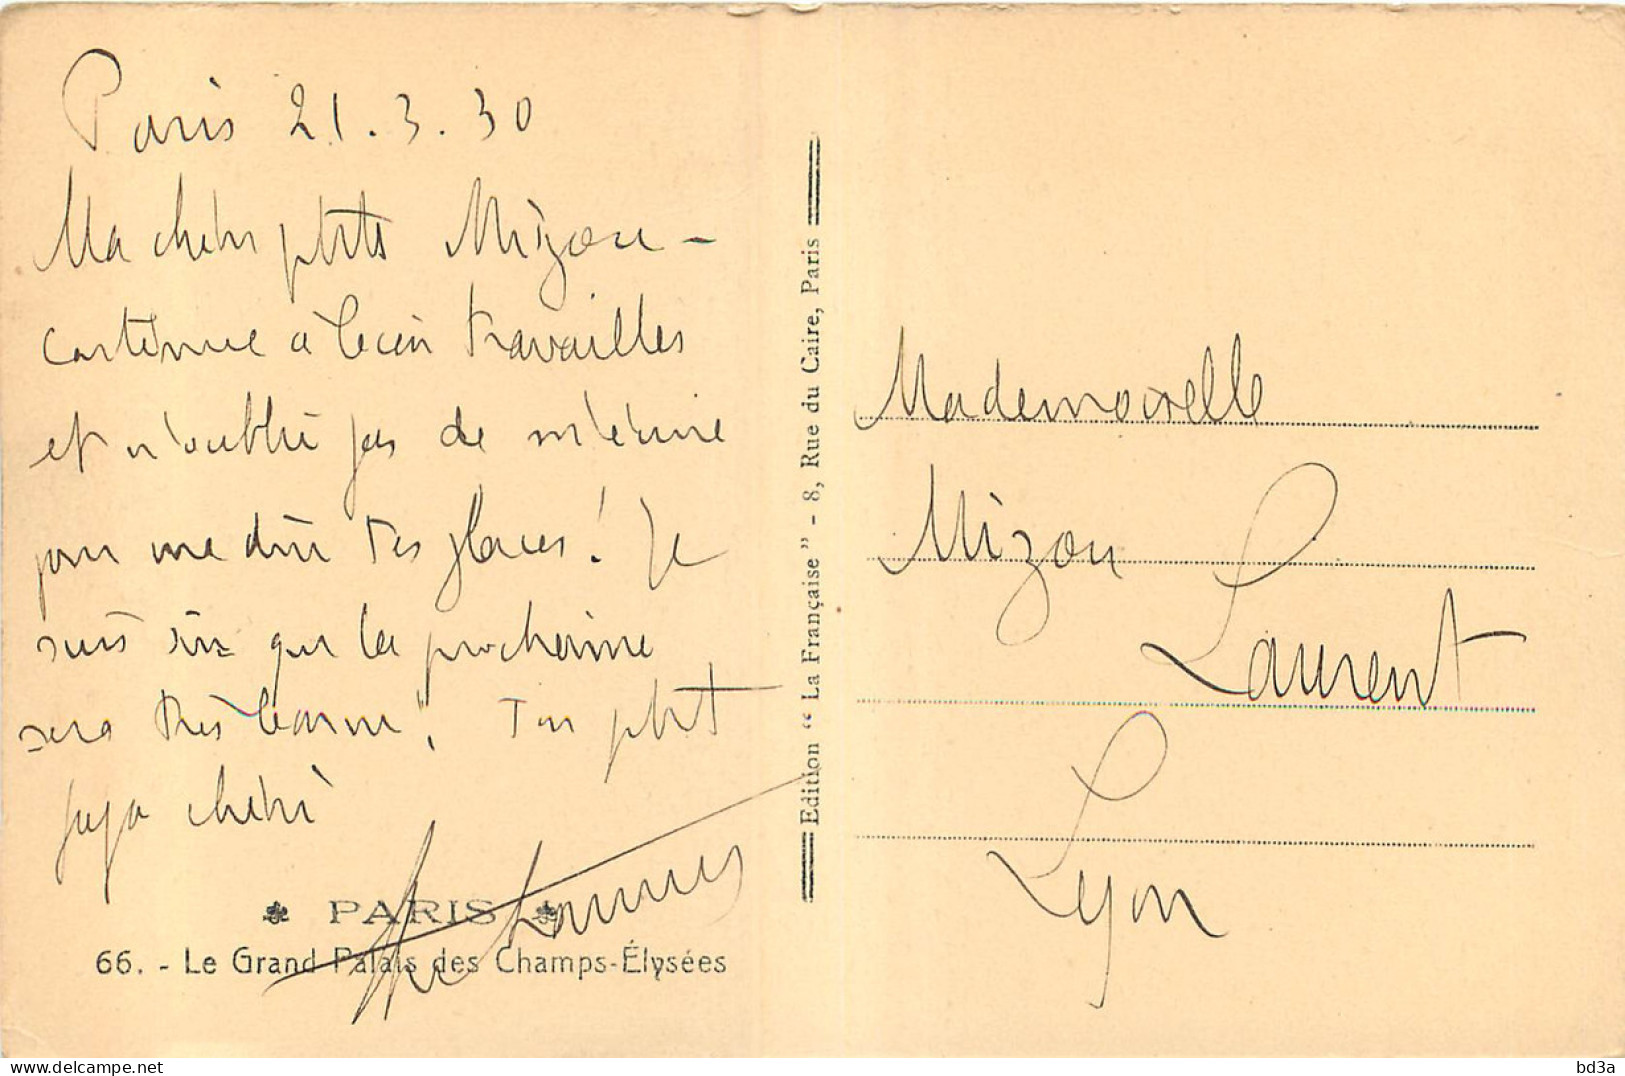 Paris 21.3.30
Ma chérie petite Mizou -
continue à bien travailler
et n'oublie pas de m'écrire
pour me dire tes places! Je
suis sûr que la prochaine
sera très bonne! Ton petit
papa chéri
PARIS
66. - Le Grand Palais des Champs-Élysées
Edition “ La Française ” - 8, Rue du Caire, Paris
Mademoiselle
Mizou
Laurent
Lyon
delcampe.net
bd3a